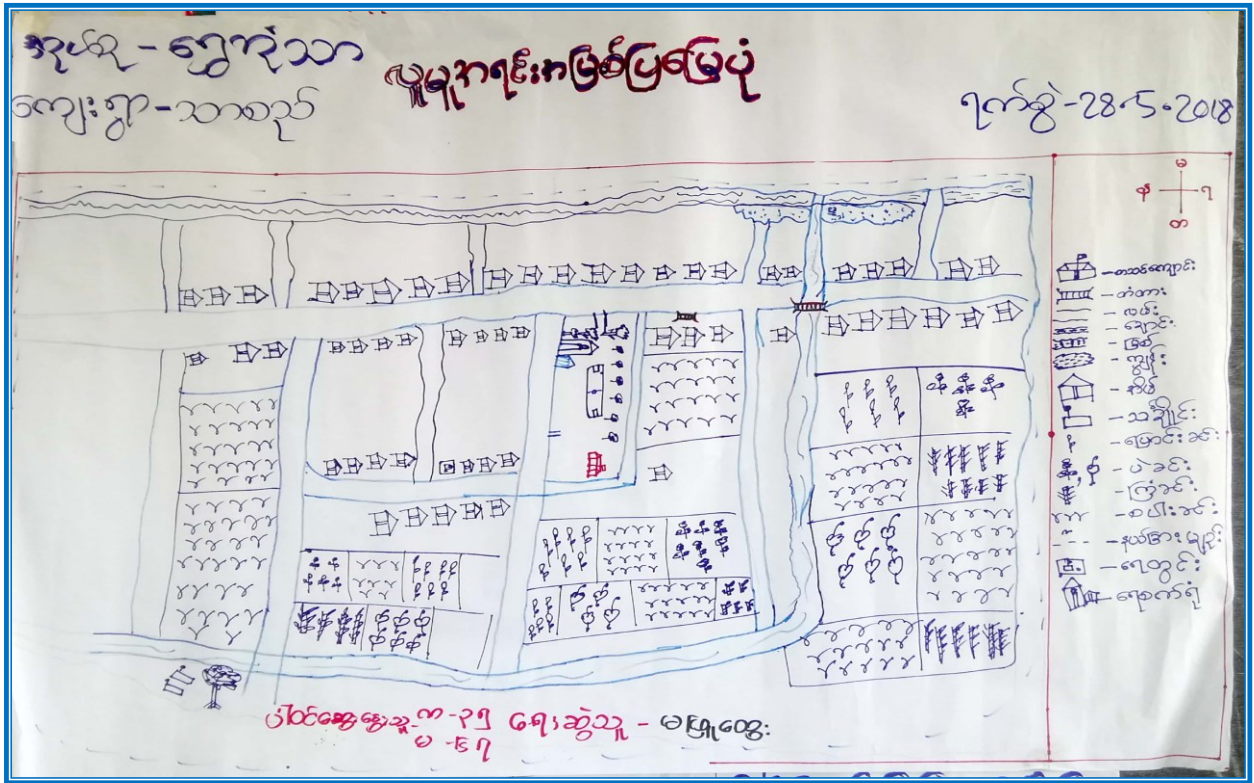 အုပ်စု - ရွှေကုံသာ
ကျေးရွာ - သာစည်
လူမှုအရင်းအမြစ်ပြမြေပုံ
ရက်စွဲ - 28.5.2018
မ
န
ရ
တ
- စာသင်ကျောင်း
- တံတား
- လမ်း
- ချောင်း
- မြစ်
- ကျွန်း
- အိမ်
- သင်္ချိုင်း
- ပြောင်းခင်း
- ပဲခင်း
- ကြံခင်း
- စပါးခင်း
- နယ်ခြားမျဉ်း
- ရေတွင်း
- ရေစက်ရုံ
ပါဝင်ဆွေးနွေးသူ - ကျ - ၃၅
မ - ၄၅
ရေးဆွဲသူ - မဖြူထွေး